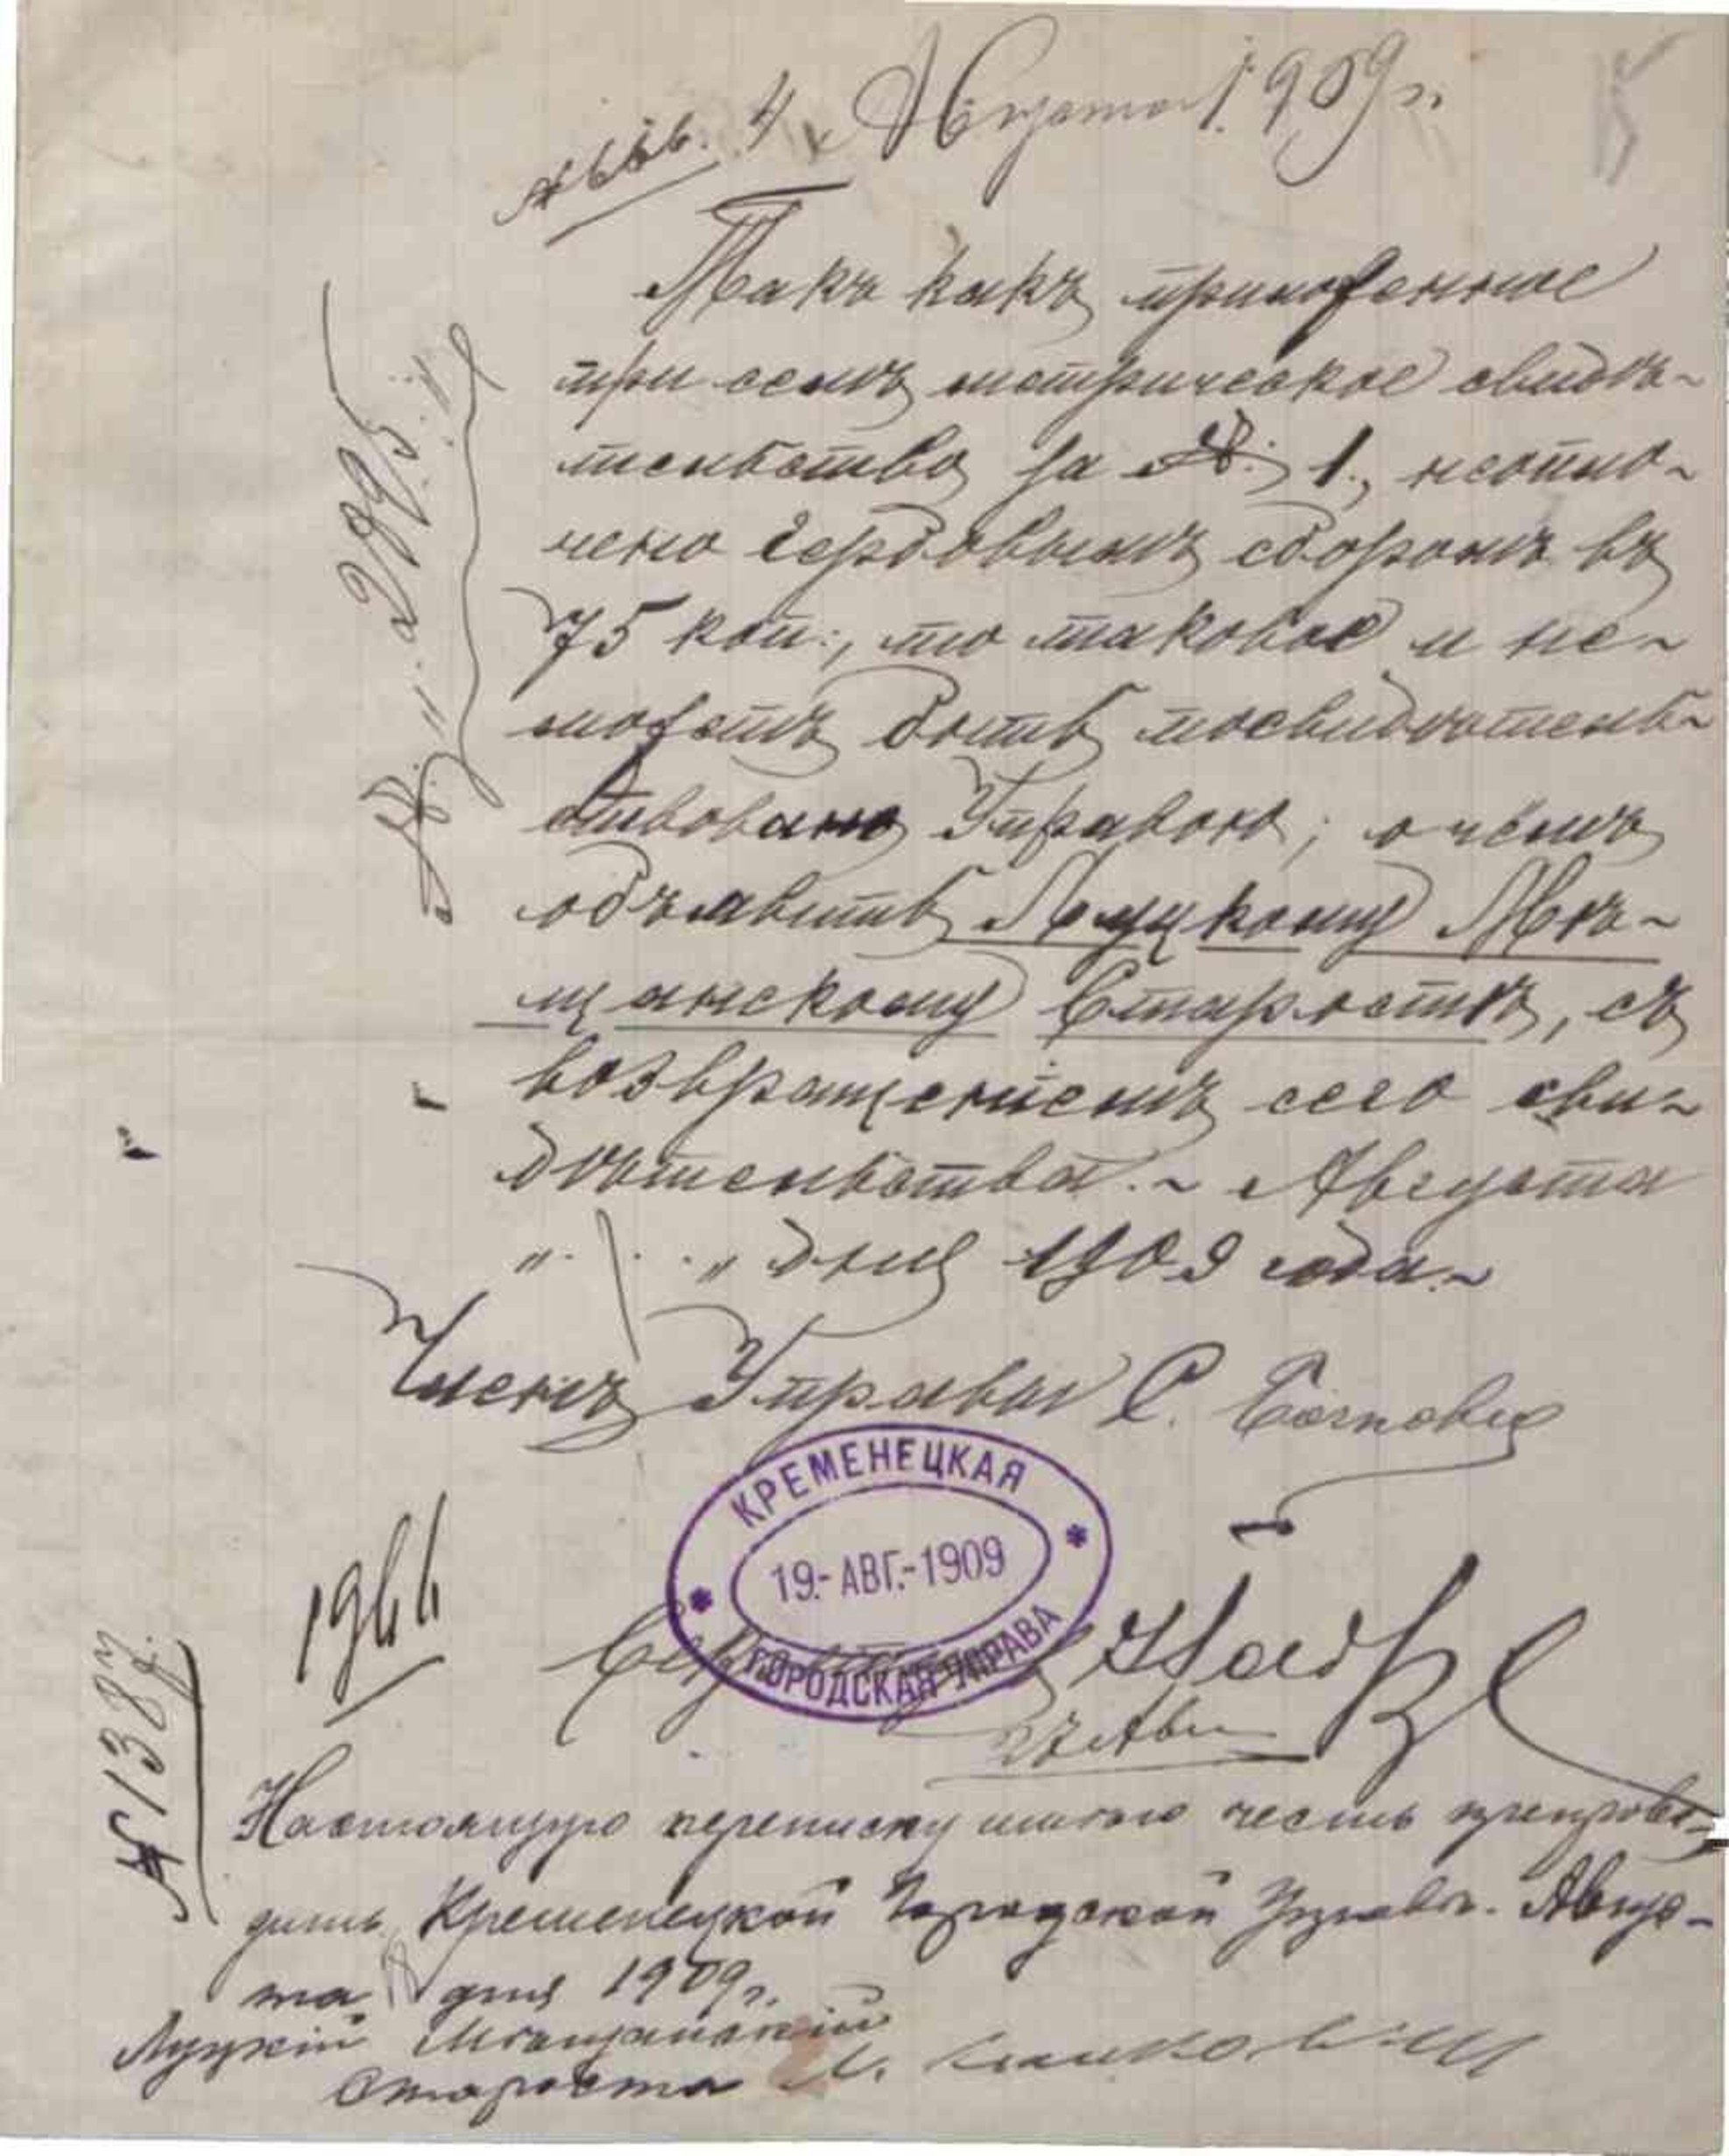 № 666. 4 Августа 1909 г.
15
Такъ какъ приложенное
при семъ метрическое свидѣ-
тельство за № 1, неопла-
чено гербовымъ сборомъ въ
75 коп:, то таковое и не-
можетъ быть посвидѣтель-
ствовано Управою; о чёмъ
объявить Луцкому Мѣ-
щанскому Старостѣ, съ
возвращеніемъ сего сви-
дѣтельства. Августа
" " дня 1909 года.
Членъ Управы С.
КРЕМЕНЕЦКАЯ
19.-АВГ.-1909
ГОРОДСКАЯ УПРАВА
1966
Секретарь
27 Авг
№ 1387
Настоящую переписку имѣю честь препрово-
дить Кременецкой Городской Управѣ. Авгус-
та дня 1909 г.
Луцкій Мѣщанскій
Староста